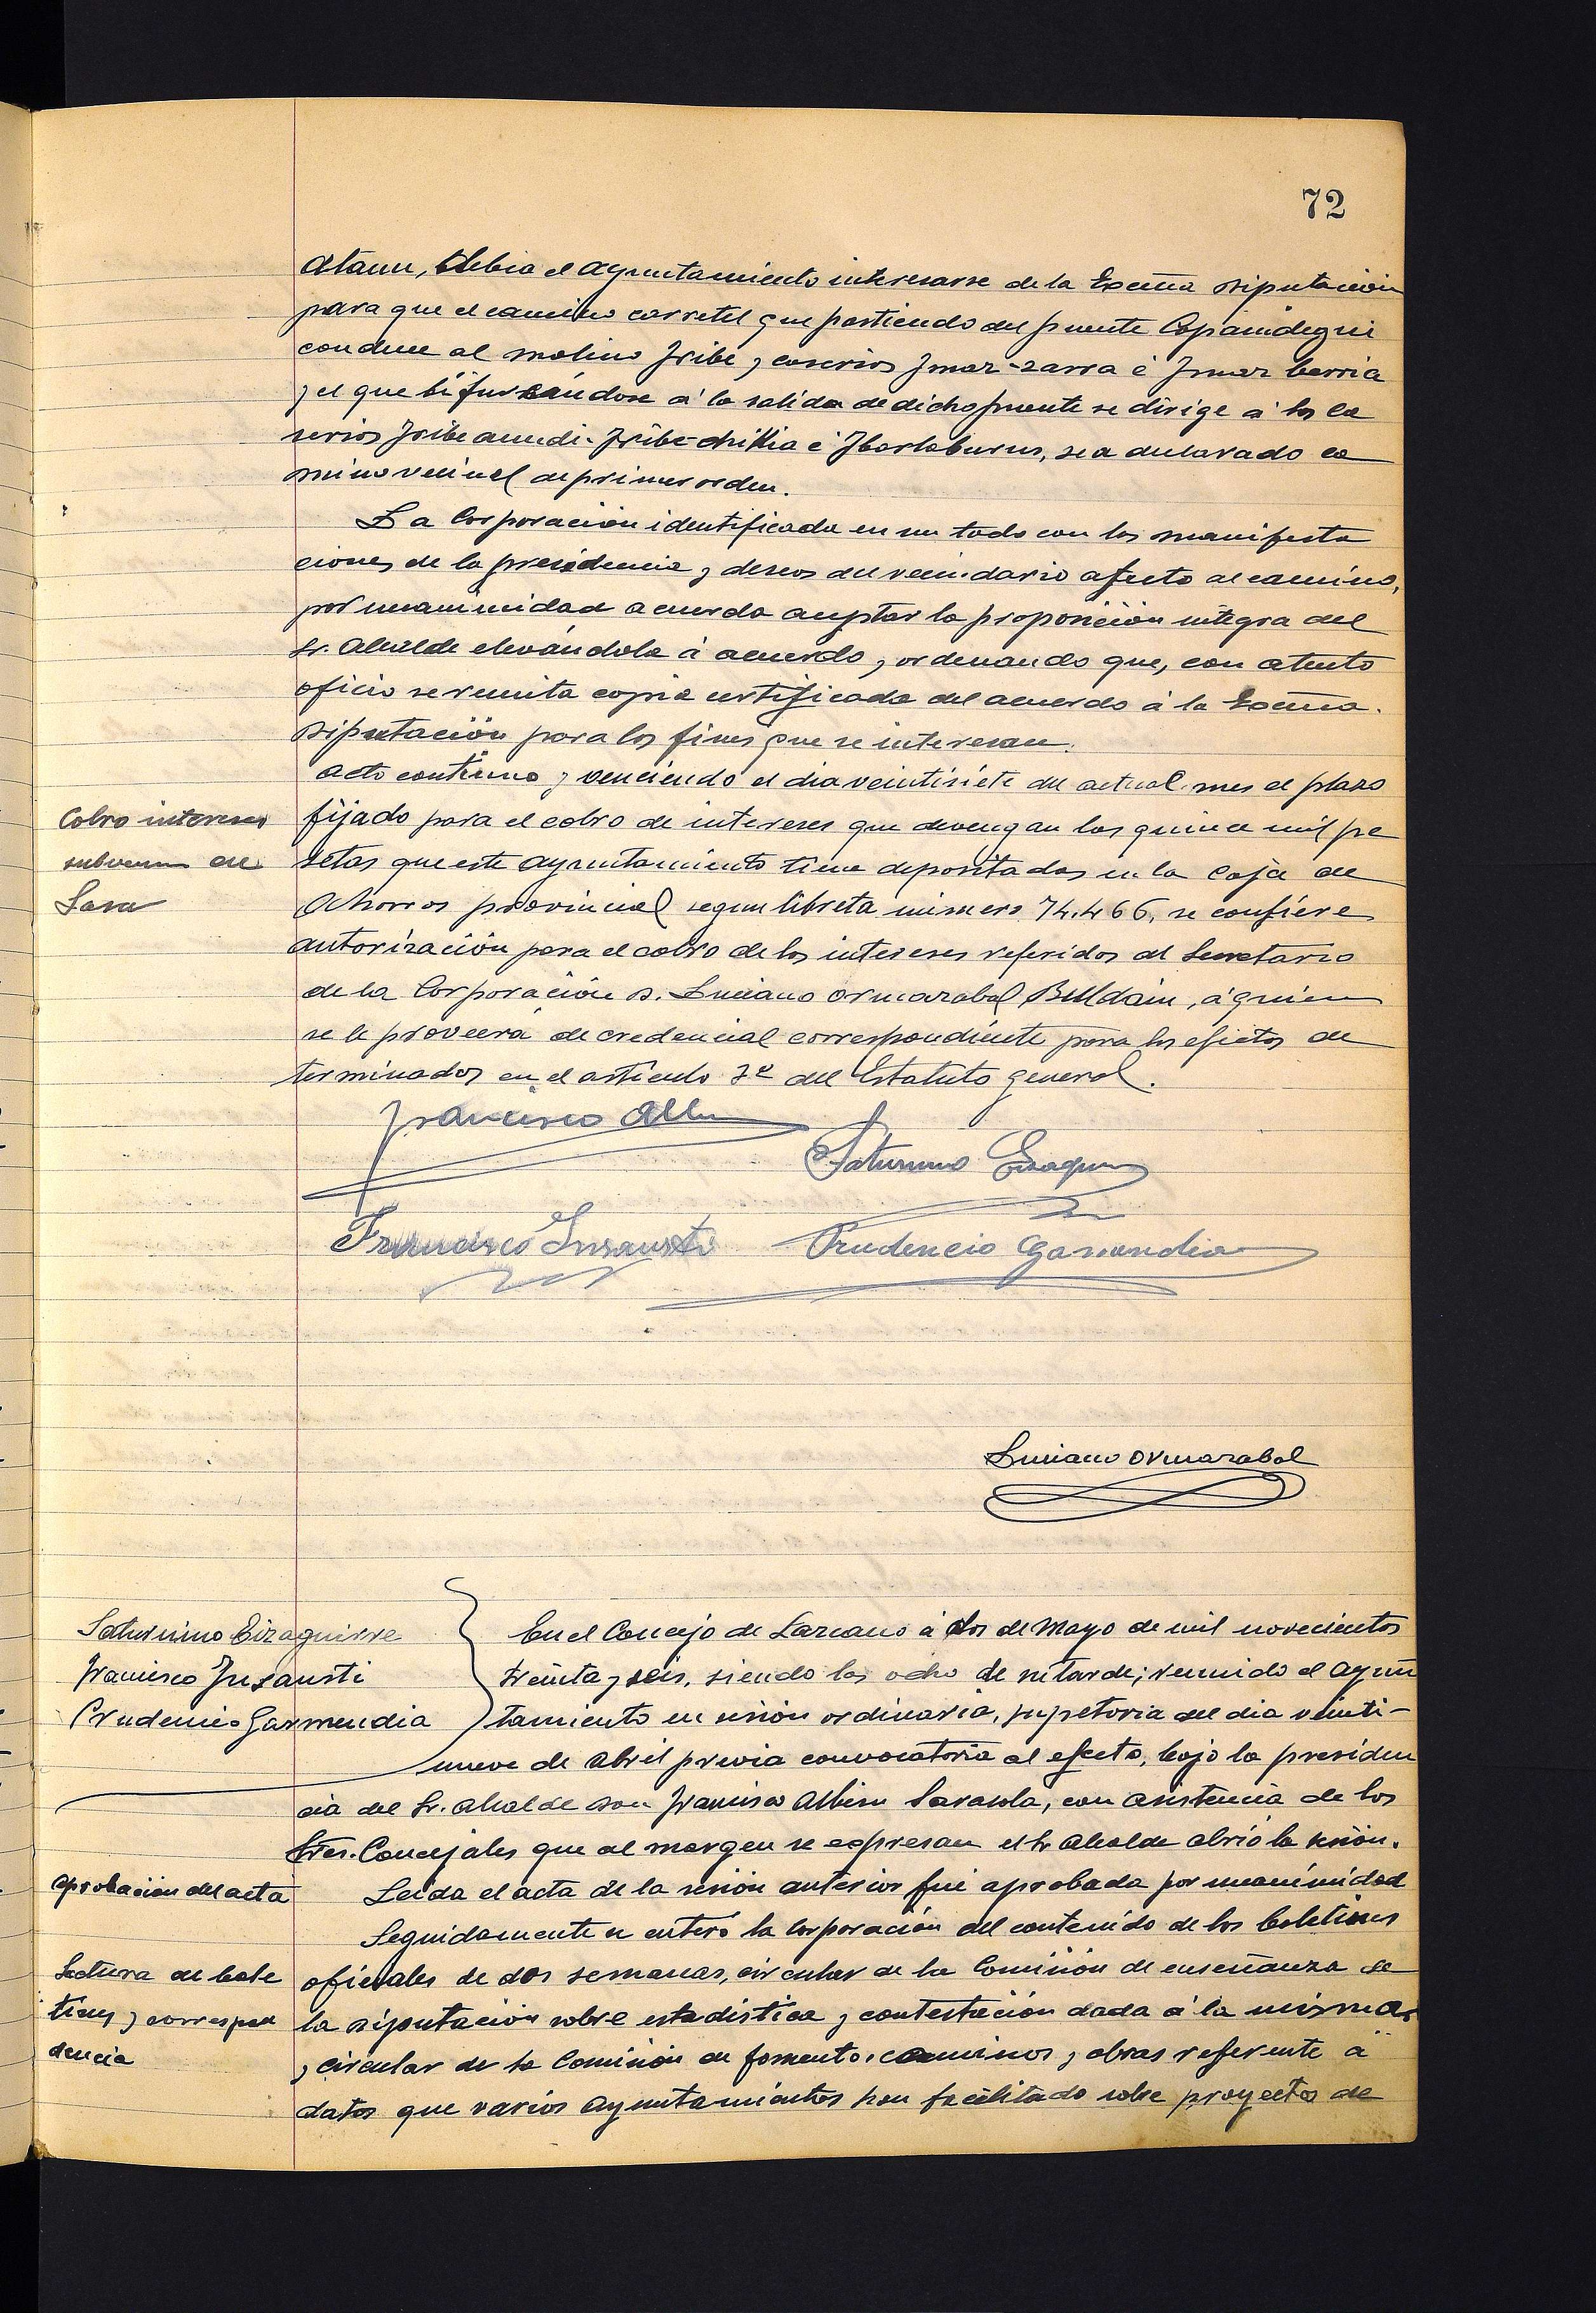 72
Ataun, debia el Ayuntamiento interesarse de la Excma Diputación
para que el camino carretil que partiendo del puente Copanidegui
conduce al molino Iribe y caserios Imaz-zarra é Imaz berria
y el que bifurcándose á la salida de dicho puente se dirige á los ca
serios Iribe aundi, Iribe-chikia é Ibarlaburu, sea declarado ca
mino vecinal de primer orden.
La Corporación identificada en un todo con las manifesta
ciones de la presidencia y deseos del vecindario afecto al camino,
por unanimidad acuerda aceptar la proposición integra del
Sr. Alcalde elevándola á acuerdo y ordenando que, con atento
oficio se remita copia certificada del acuerdo á la Excma.
Diputación para los fines que se interesan.
Acto continuo y venciendo el dia veintisiete del actual mes el plazo
Cobro intereses
subvención de
fijado para el cobro de intereses que devengan las quince mil pe
setas que este Ayuntamiento tiene depositadas en la Caja de
Ahorros provincial segun libreta número 74.466, se confiere
autorización para el cobro de los intereses referidos al Secretario
de la Corporación D. Luciano Ormazabal Beldain, á quien
se le proveerá de credencial correspondiente para los efectos de
terminados en el articulo 7º del Estatuto general.
Francisco Albisu
Saturnino Eizaguirre
Francisco Insausti Prudencio Garmendia
Luciano Ormazabal
Saturnino Eizaguirre
Francisco Insausti
Prudencio Garmendia
En el Concejo de Lazcano á dos de Mayo de mil novecientos
treinta y seis, siendo las ocho de su tarde; reunido el Ayun
tamiento en sesión ordinaria, supletoria del dia veinti-
nueve de Abril previa convocatoria al efecto, bajo la presiden
cia del Sr. Alcalde don Francisco Albisu Sarasola, con asistencia de los
Sres. Concejales que al margen se expresan el Sr Alcalde abrió la sesión.
Aprobación del acta
Leida el acta de la sesión anterior fué aprobada por unanimidad
Seguidamente se enteró la Corporación del contenido de los boletines
Lectura de bole
tines y correspon
dencia
oficiales de dos semanas, circular de la Comisión de enseñanza de
la Diputación sobre estadistica y contestación dada á la misma,
y circular de la Comisión de fomento, caminos y obras referente á
datos que varios Ayuntamientos han facilitado sobre proyectos de